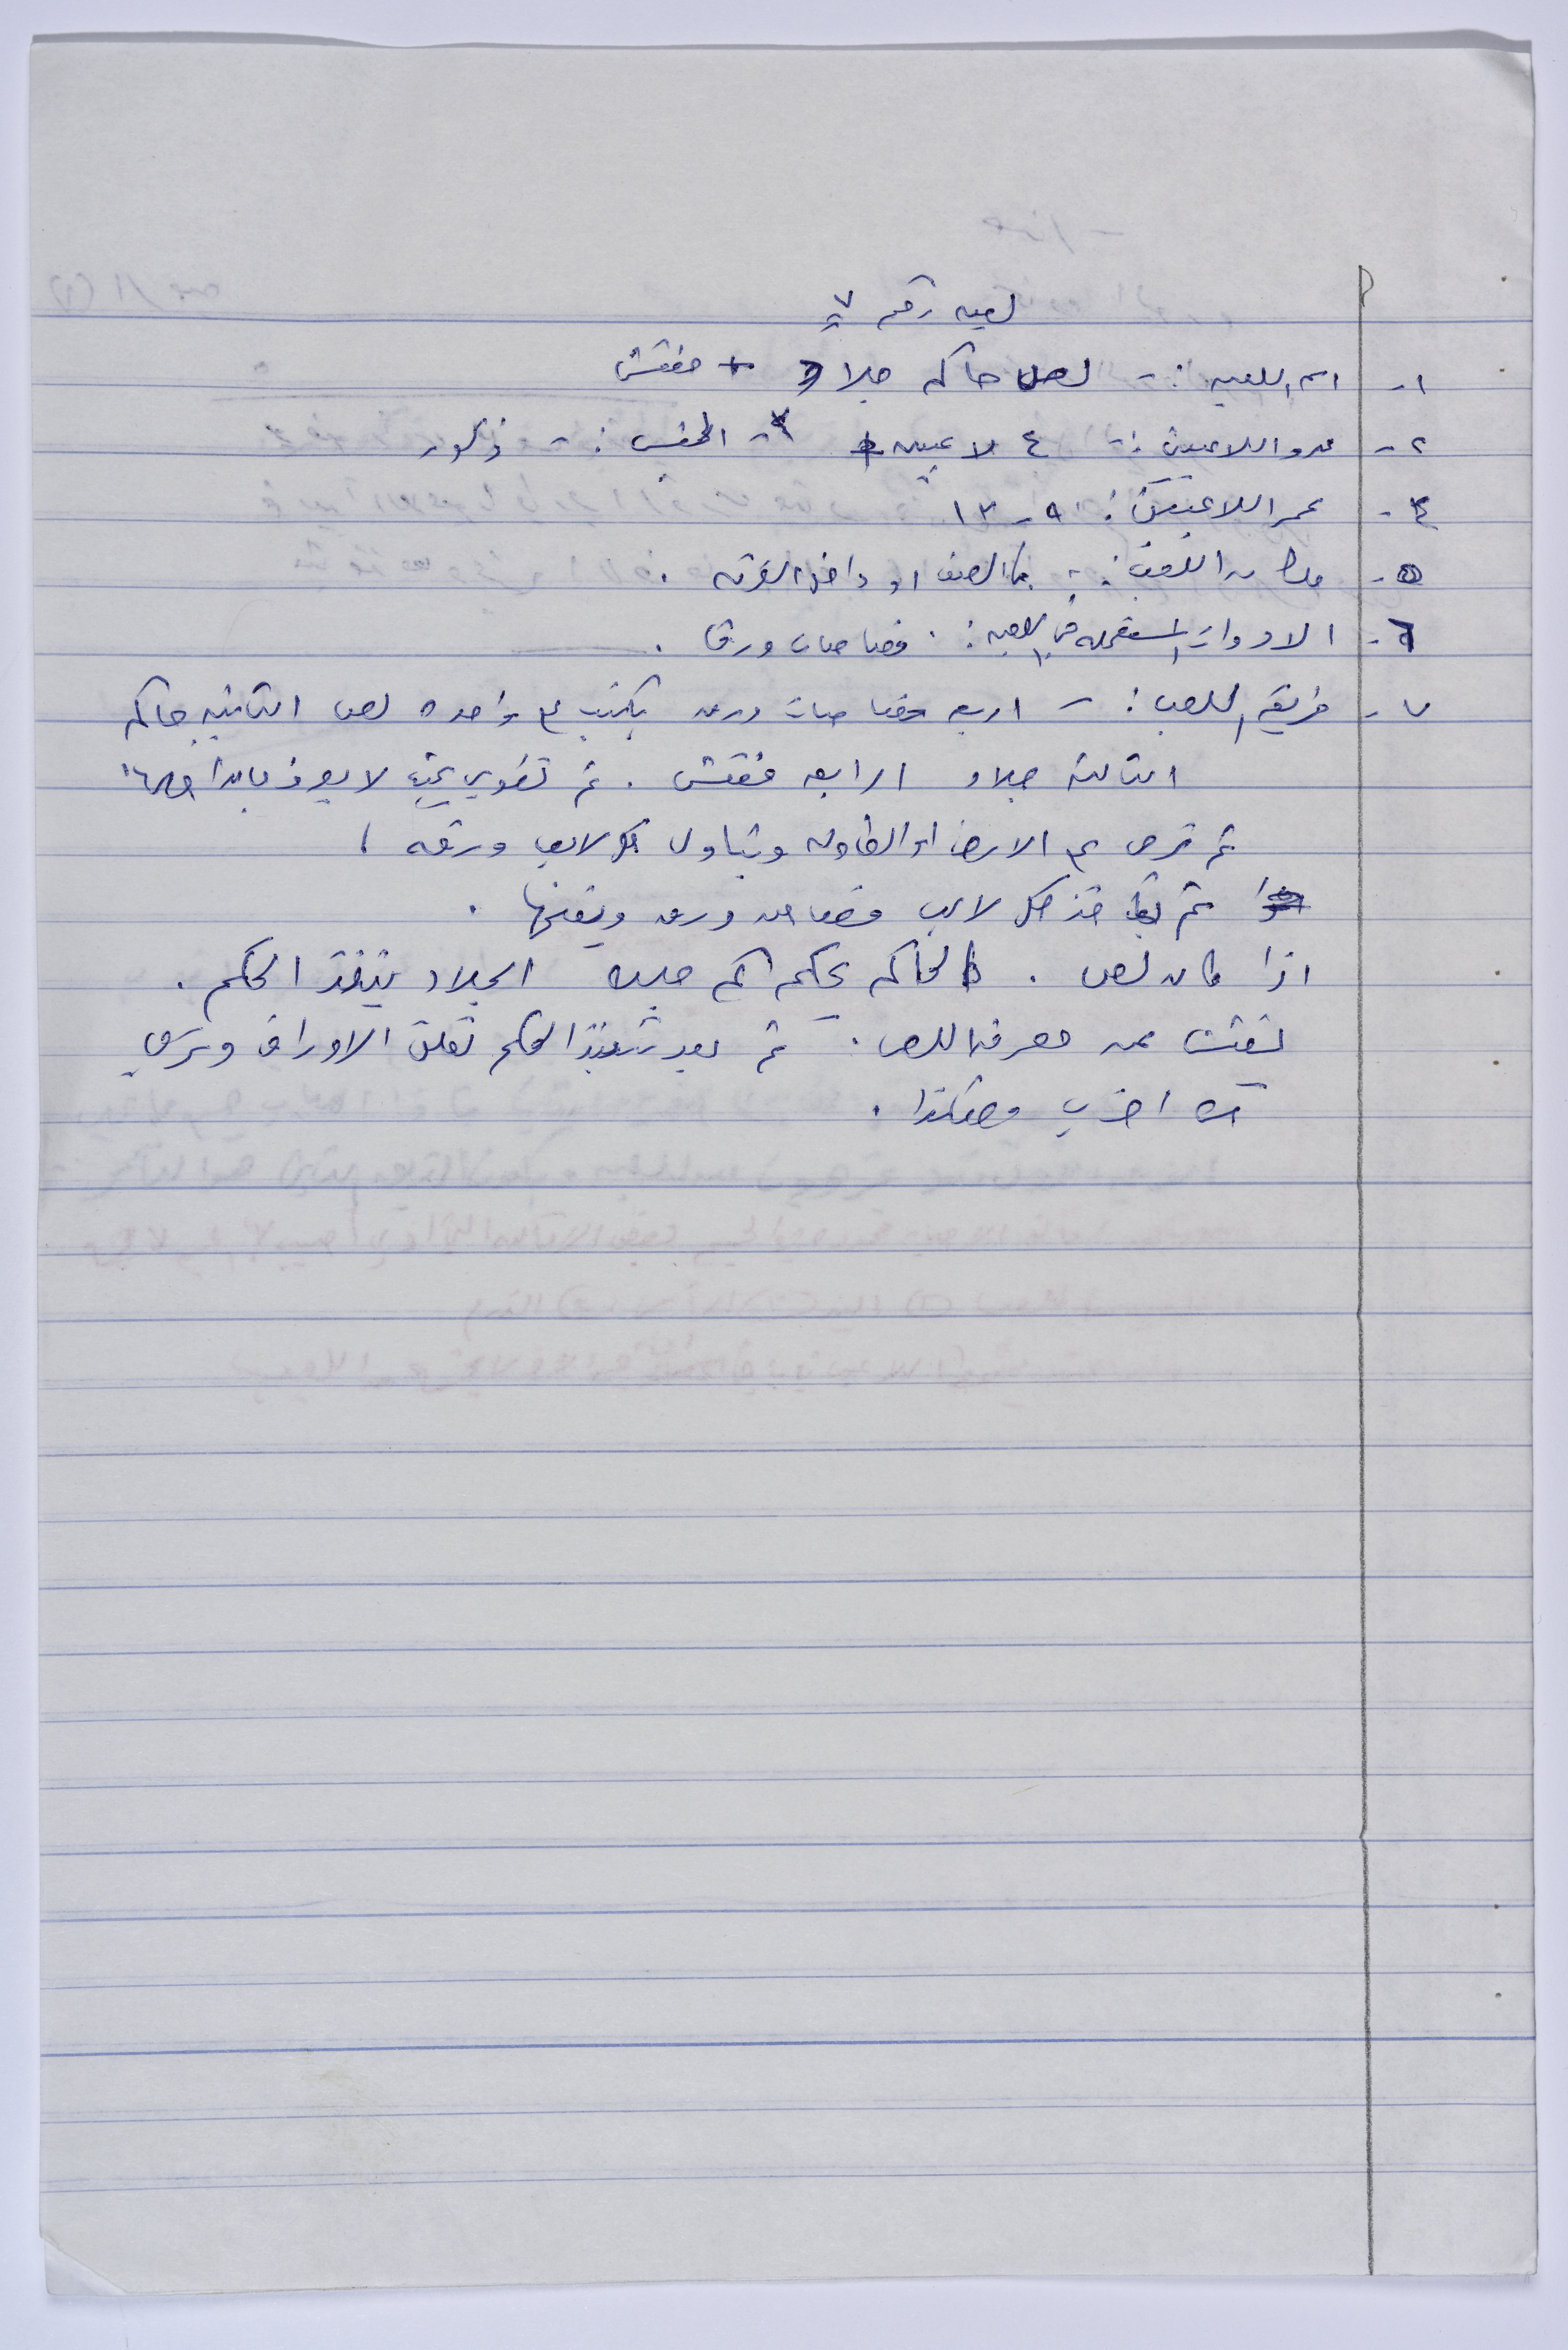 لعبه رقم ٧
١- اسم اللعبه :- لص حاكم جلاد + مفتش
٢- عدد اللاعبين :- ٤ لاعبين ٣- الجنس :- ذكور
٤- عمر اللاعبين : ٩ - ١٣
٥- مكان اللعب :- بالصف او داخل الغرفه .
٦- الادوات المستعمله في اللعبه : قصاصات ورق .
٧- طريقة اللعب :- اربع قصاصات ورق يكتب ع واحده لص الثانيه حاكم
الثالثه جلاد الرابعه مفتش . ثم تطوى بحيث لا يعرف ما بداخلها
ثم ترمى ع الارض او الطاوله ويتناول كل لاعب ورقه .
ثم يأخذ كل لاعب قصاصه ورق ويفتحها .
اذا كان لص . الحاكم يحكم كم جلده الجلاد ينفذ الحكم .
يفتش عن معرفة اللص . ثم بعد تنفيذ الحكم تغلق الاوراق وترمى
مره اخرى وهكذا .